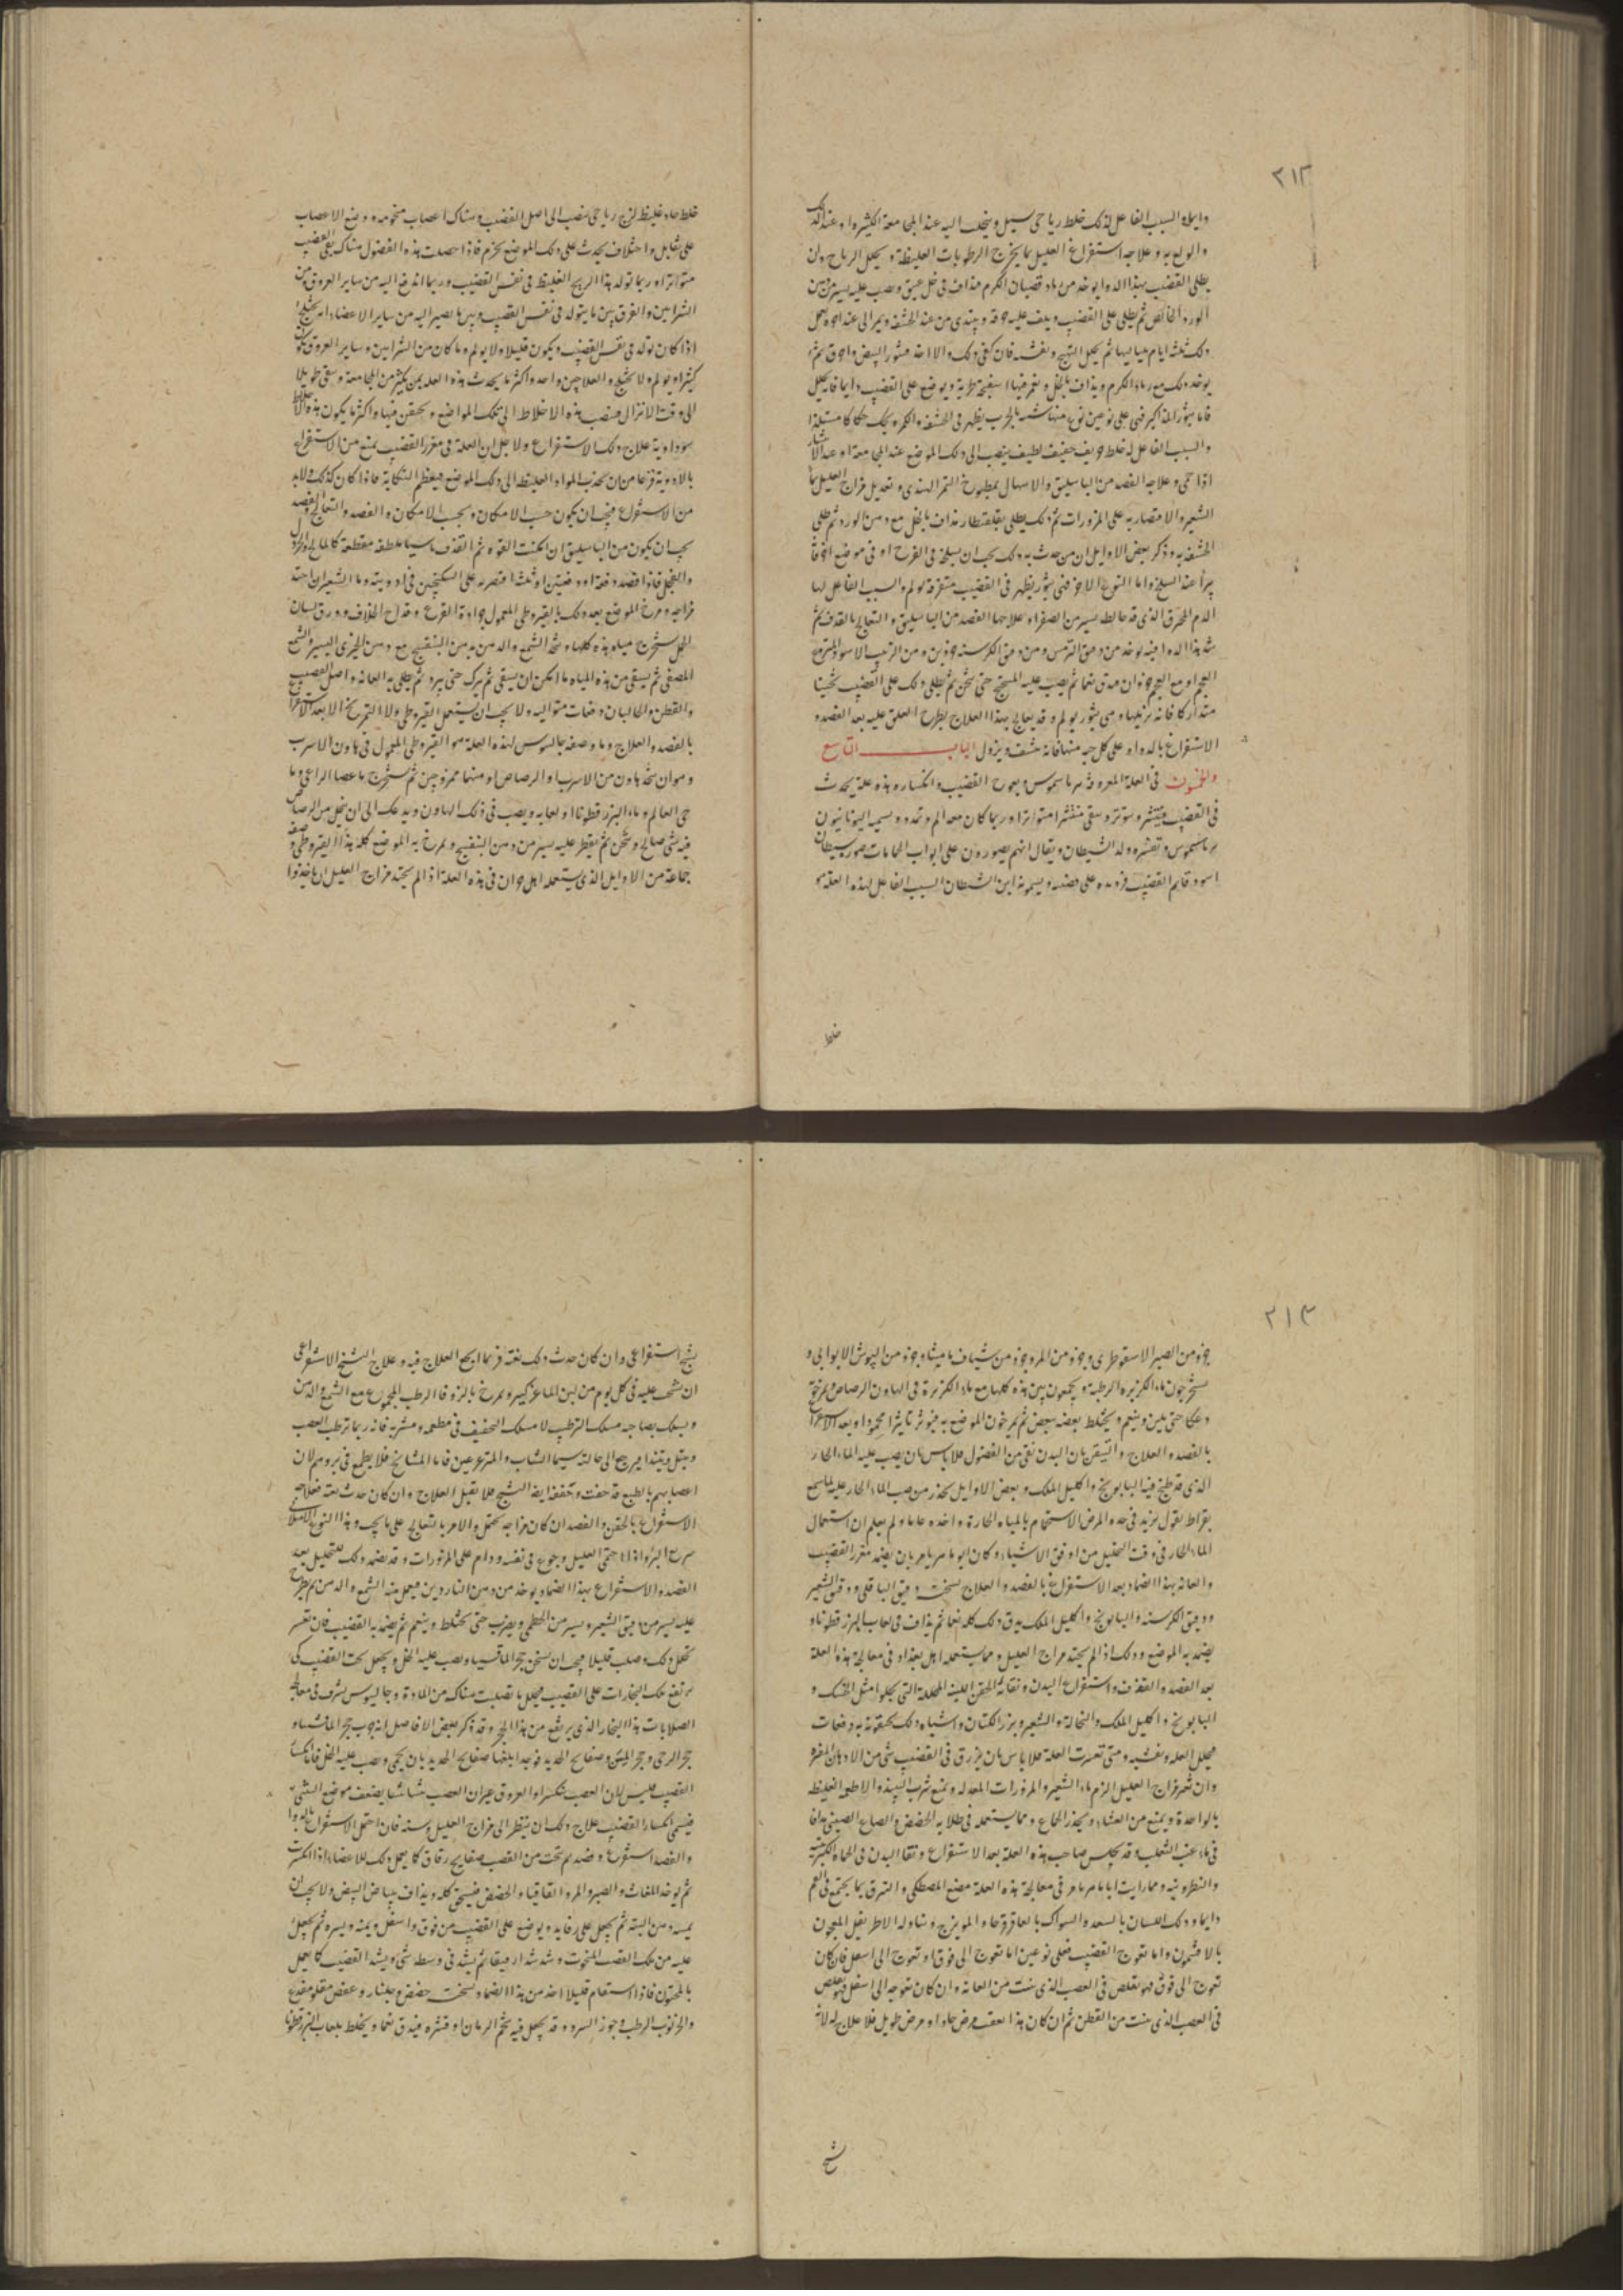 ٢١٢
وايما والسبب الفاعل لذلك خلط رياحي يسيل ويتجلب اليه عند المجامعة الكثيرة او عند الدلك
والولع به وعلاجه استفراغ العليل بما يخرج الرطوبات الغليظة ويحلل الرياح وان
يطلى القضيب بهذا الدوا يوخذ من رماد قضبان الكرم مذاف في خل عتيق ويصب عليه يسير من دهن
الورد الخالص ثم يطلى على القضيب ويلف عليه خرقة ويبتدى من عند الحشفة
ذلك ثلثة ايام بلياليها ثم يحلل التهيج ويفشه فان كفى ذلك والا اخذ قشور البيض واحرق ثم
يوخذ ذلك مع رماد الكرم ويذاف بالخل ويغمر فيها اسفنجة طرية ويوضع على القضيب دايما فانه يحلل
فاما بثور الذكر فهي على نوعين نوع منها شبيه بالجرب يظهر في الحشفة والكمرة يحك حكاكا مستلذا
والسبب الفاعل له خلط حريف خفيف لطيف ينصب الى ذلك الموضع عند المجامعة او عند الانتشار
اذا حمي وعلاجه الفصد من الباسليق والاسهال بمطبوخ التمر الهندي وتعديل مزاج العليل بماء
الشعير والاقتصار به على المزورات ثم ذلك يطلى بقلقطار مذاف بالخل مع دهن الورد ثم يطلى
الحشفة به وذكر بعض الاوايل ان من حدث به ذلك يجب ان يسلخه في القرح او في موضع اخر فانه
يبرأ عند السلخ واما النوع الاخر فهي بثور يظهر في القضيب متفرقة يولم والسبب الفاعل لها
الدم المحترق الذي قد خالطه يسير من الصفراء علاجها الفصد من الباسليق والتعالج بالقذف ثم
هذا الدوا فيه يوخذ من دقيق الترمس ومن دقيق الكرسنة جزئين ومن الزبيب الاسود المنزوع
العجم او مع العجم جزء ان يدق نعما ثم يصب عليه الميبختج حتى يثخن ثم يطلى ذلك على القضيب ثخينا
متداركا فانه يزيلها وهي بثور يولم وقد يعالج بهذا العلاج بطرح العلق عليه بعد الفصد و
الاستفراغ بالدوا وعلى كل حبة منها فانه ينشف ويزول الباب التاسع
والخمسون في العلة المعروفة بريامسموس وبعوج القضيب وانكساره هذه علة يحدث
في القضيب فينتشر ويتوتر ويبقى منتشرا متواترا وربما كان معه الم وتمدد ويسميه اليونانيون
برياسسموس وتفسيره ولد الشيطان ويقال انهم يصورون على ابواب الحمامات صورة شيطان
اسود قايم القضيب فرد يده على قضيبه ويسمونه ابن الشيطان السبب الفاعل لهذه العلة هو
خلط
خلط حار غليظ لزج رياحي ينصب الى اصل القضيب وهناك اعصاب مختومة وضع الاعصاب
على تقابل واختلاف يحدث على ذلك الموضع بخرم فاذا حصلت هذه الفضول هناك بقي القضيب
متواترا وربما تولد هذا الريح الغليظ في نفس القضيب وربما اندفع اليه من ساير العروق ومن
الشرايين والفرق بين ما يتولد في نفس القضيب وبين ما يصير اليه من ساير الاعضاء انه يختلج
اذا كان تولده في نفس القضيب ويكون قليلا ولا يولم وما كان من الشرايين وساير العروق يكون
كثيرا ويولم ولا يختلج والعلاجين واحد واكثر ما يحدث هذه العلة بمن يكثر من المجامعة ويبقى طويلا
الى وقت الانزال فينصب هذه الاخلاط الى تلك المواضع ويحتقن فيها واكثر ما يكون هذه الاخلاط
سوداوية علاج ذلك الاستفراغ ولا جل ان العلة في مغرز القضيب يمنع من الاستفراغ
بالادوية فزعا من ان يجذب المواد الغليظة الى ذلك الموضع فيعظم النكاية فاذا كان كذلك ولابد
من الاستفراغ فيجب ان يكون حسب الامكان وبحسب الامكان والفصد والتعالج والفصد
يجب ان يكون من الباسليق ان امكنت القوة ثم القذف باشيا ملطفة مقطعة كالمالح والخردل
والفجل فاذا فصد دفعة او دفعتين او ثلثا اقتصر به على السكنجبين في ادويته وما الشعير ان احتد
مزاجه ومرخ الموضع بعد ذلك بالقيروطي المعمول بجرادة القرع وقداح الخلاف وورق لسان
الحمل يستخرج مياه هذه كلها وتتخذ الشمع والدهن من دهن البنفسج مع دهن الخيري اليسير والشمع
المصفى ثم يسقى من هذه المياه ما امكن ان يسقى ثم يترك حتى يبرد ثم يطلى به العانة واصل القضيب
والقطن والحالبان دفعات متوالية ولا يجب ان يستعمل القيروطي ولا التمريخ الا بعد الاستفراغ
بالفصد والعلاج وما وصفه جالينوس لهذه العلة هو القيروطي المعمول في هاون الاسرب
وهو ان تتخذ هاون من الاسرب او الرصاص او منهما ممزوجين ثم يستخرج ما عصا الراعي وما
حي العالم وماء البزر قطونا او لعابه ويصب في ذلك الهاون ويدعك الى ان ينحل من الرصاص
فيه شي صالح ويثخن ثم يقطر عليه يسير من دهن البنفسج ويمرخ به الموضع كله بهذا القيروطي وصفة
جماعة من الاوايل الذي يستعمله اهل حران في هذه العلة اذا لم يحتد مزاج العليل ان ياخذوا
٢١٣
جزء من الصبر الاسقوطري وجزء من المر وجزء من شياف ماميثا وجزء من البوش الاربوابي و
يستخرجون ماء الكزبرة الرطبة ويجمعون بين هذه كلها مع ماء الكزبرة في الهاون الرصاص ويمزج
دعكا حتى يلين وينعم ويختلط بعضه ببعض ثم يمرخون الموضع به فيوثر تاثيرا محمودا وبعد الاستفراغ
بالفصد والعلاج والتيقن بان البدن نقي من الفضول فلا باس بان يصب عليه الماء الحار
الذي قد طبخ فيه البابونج واكليل الملك وبعض الاوايل يحذر من صب الماء الحار عليه لما سمع
بقراط يقول يزيد في هذه المرض الاستحمام بالمياه الحارة واخذه عاما ولم يعلم ان استعمال
الماء الحار في وقت التحليل من اوفق الاشياء وكان ابو ماهر يامر بان يضمد مغرز القضيب
والعانة بهذا الضماد بعد الاستفراغ بالفصد والعلاج نسخته دقيق الباقلى ودقيق الشعير
ودقيق الكرسنة والبابونج واكليل الملك يدق ذلك كله نعما ثم يذاف في لعاب البزر قطونا و
يضمد به الموضع وذلك اذا لم يحتد مزاج العليل ومما يستعمله اهل بغداد في معالجة هذه العلة
بعد الفصد والقذف واستفراغ البدن ونقائه الحقن اللينة المحللة التي يجلوا مثل الخسك و
البابونج واكليل الملك والنخالة والشعير وبزر الكتان واشباه ذلك يحقنونه به دفعات
فيحلل العلة ويفشيه ومتى تعسرت العلة فلا باس بان يزرق في القضيب شي من الادهان المغرية
وان تغير مزاج العليل الزم ماء الشعير والمزورات المعدلة ويمنع شرب النبيذ والاطعمة الغليظة
بالواحدة ويمنع من العشاء ويحذر الجماع ومما يستعمله في طلايه الحضض والصاع الصيني مذافا
في ماء عنب الثعلب وقد يجلس صاحب هذه العلة بعد الاستفراغ ونقا البدن في الحماة الكبريتية
والنطرونية ومما رايت ابا ماهر يامر في معالجة هذه العلة مضغ المصطكي والتبزق بما يجتمع في الفم
دايما ودلك اللسان بالسعد والسواك بالعاقرقرحا والمويزج وتناوله الاطريفل المعجون
بالافتيمون واما تعوج القضيب فعلى نوعين اما تعوج الى فوق او تعوج الى اسفل فان كان
تعوج الى فوق فهو تقلص في العصب الذي ينبت من العانة وان كان تعوجه الى اسفل فهو تقلص
في العصب الذي ينبت من القطن ثم ان كان هذا بعقب مرض حاد او مرض طويل فلا علاج له لانه
تشنج
تشنج استفراغي وان كان حدث ذلك بغتة فربما انجع العلاج فيه وعلاج التشنج الاستفراغي
ان يشخب عليه في كل يوم من لبن الماعز كثير ويمرخ بالزوفا الرطب المجموع مع الشمع والدهن
ويسلك بصاحبه مسلك الترطيب لا مسلك التجفيف في مطعمه ومشربه فانه ربما ترطب العصب
ويبتل ويتندا فيرجع الى حاله سيما الشاب والمترعرعين فاما المشايخ فلا يطمع في بروهم لان
اعصابهم بالطبع قد جفت وتجففه ايضا التشنج فلا يقبل العلاج وان كان حدث بغتة فعلاجه
الاستفراغ بالحقن والفصد ان كان مزاجه يحتمل والامر بالتعالج على ما يجب وهذا النوع الامتلائي
سريع البرؤ اذا احتمى العليل وجوع في نفسه ودام على المزورات وقد يضمد ذلك للتحليل بعد
الفصد والاستفراغ بهذا الضماد يوخذ من دهن الناردين فيعمل منه الشمع والدهن ثم يطرح
عليه يسير من دقيق الشعير ويسير من الخطمي ويضرب حتى يختلط وينعم ثم يضمد به القضيب فان تعسر
تحلل ذلك وصلب قليلا فيجب ان يسخن حجر المارقشيثا ويصب عليه الخل ويجعل تحت القضيب كي
يرتفع تلك البخارات على القضيب فيحلل ما تصلبت هناك من المادة وجالينوس يشرف في معالجة
الصلابات هذا البخار الذي يرتفع من هذا الحجر وقد ذكر بعض الافاضل انه جرب حجر المارقشيثا و
حجر الرحى وحجر المسن وصفايح الحديد فوجد ابلغها صفايح الحديد بان يحمى ويصب عليه الخل فاما انكسار
القضيب فليس بان العصب ينكسر او العروق غير ان العصب
فيسمى انكسار القضيب علاج ذلك ان ينظر الى مزاج العليل وسنه فان احتمل الاستفراغ بالدوا
والفصد استفرغ وضمد ثم تنحت من القصب صفايح رقاق كما يعمل ذلك للاعضاء اذا انكسرت
ثم يوخذ المغاث والصبر والمر والقاقيا والحضض فيسحق كله ويذاف ببياض البيض ولا يجب ان
يمسه دهن البتة ثم يجعل على رفايد ويوضع على القضيب من فوق واسفل ويمنة ويسرة ثم يجعل
عليه من تلك القصب المنحوت ويشد شدا رفيقا ثم يشد في وسطه شي ويشد القضيب كما يعمل
بالمختون فاذا استقام قليلا اخذ من هذا الضماد نسخته حضض وجلنار وعفص مقلو مقمع
والخرنوب الرطب وجوز السرو وقد يجعل فيه شحم الرمان او قشره فيدق نعما ويخلط بلعاب البزرقطونا